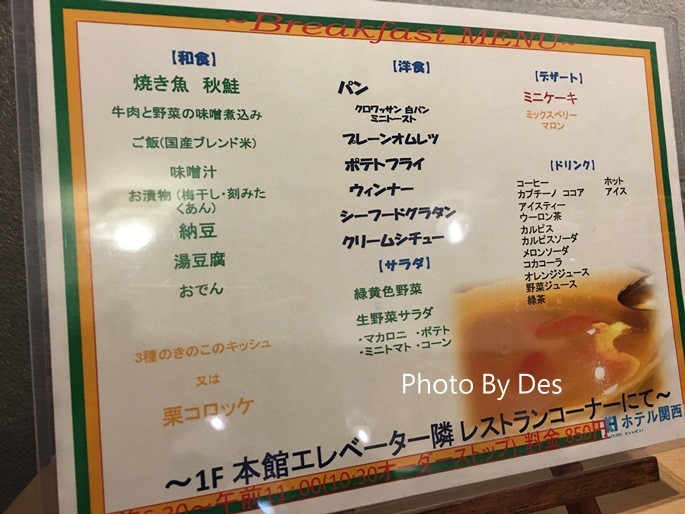 ~Breakfast MENU~
【和食】
焼き魚 秋鮭
牛肉と野菜の味噌煮込み
ご飯(国産ブレンド米)
味噌汁
お漬物（梅干し・刻みた
くあん）
納豆
湯豆腐
おでん
3種のきのこのキッシュ
又は
栗コロッケ
【洋食】
パン
クロワッサン 白パン
ミニトースト
プレーンオムレツ
ポテトフライ
ウィンナー
シーフードグラタン
クリームシチュー
【サラダ】
緑黄色野菜
生野菜サラダ
・マカロニ ・ポテト
・ミニトマト ・コーン
【デザート】
ミニケーキ
ミックスベリー
マロン
【ドリンク】
コーヒー ホット
カプチーノ ココア アイス
アイスティー
ウーロン茶
カルピス
カルピスソーダ
メロンソーダ
コカコーラ
オレンジジュース
野菜ジュース
緑茶
Photo By Des
～1F 本館エレベーター隣 レストランコーナーにて～
ホテル関西
6:30～午前11:00(10:30オーダーストップ) 料金 850円